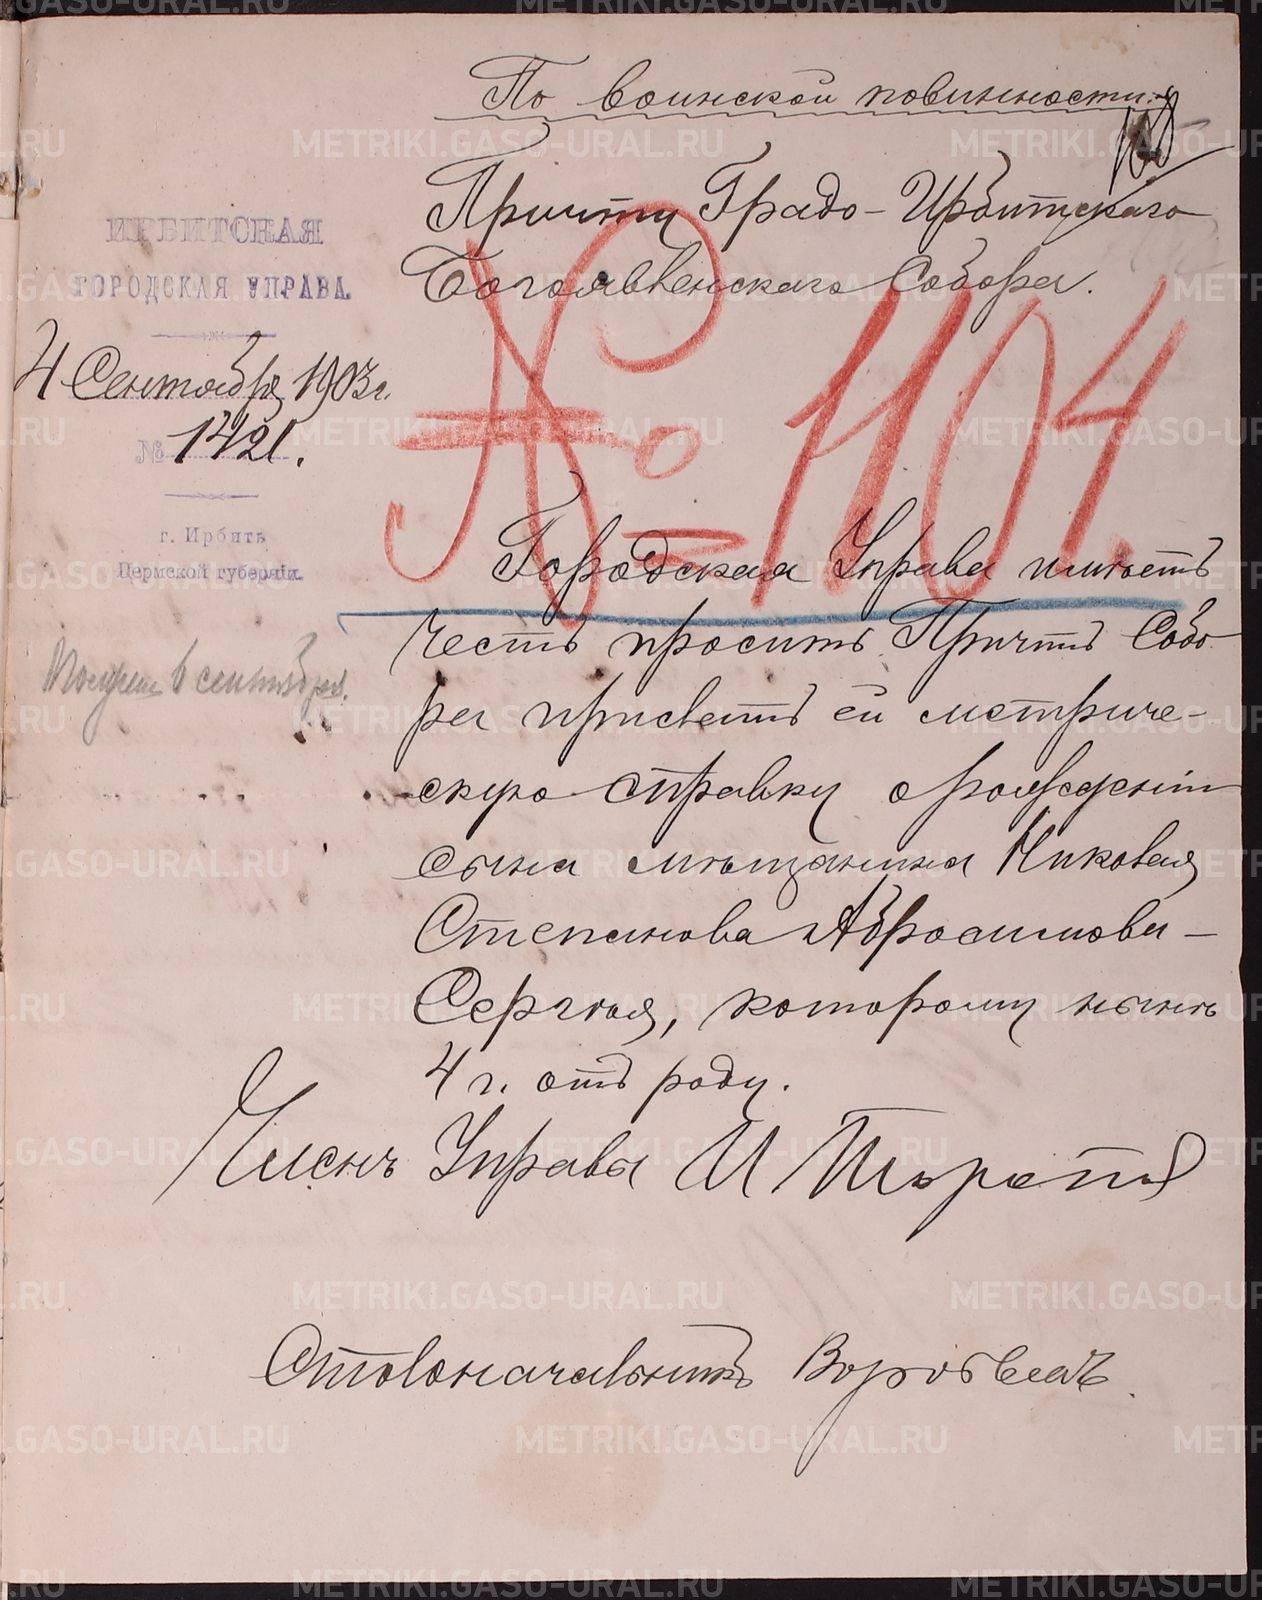 По воинской повинности.
Причту Градо-Ирбитскаго
Богоявленскаго Собора.
ИРБИТСКАЯ
ГОРОДСКАЯ УПРАВА.
4 Сентября 1903 г.
№ 1421.
г. Ирбить
Пермской губерніи.
№ 1104.
Городская Управа имѣетъ
честь просить Причтъ Собо-
ра прислать ей метриче-
скую справку о рожденіи
сына мѣщанина Николая
Степанова Абросимова –
Сергѣя, которому нынѣ
4 г. отъ роду.
в сентябрѣ.
Членъ Управы И
Столоначальникъ Воробьевъ.
METRIKI.GASO-URAL.RU